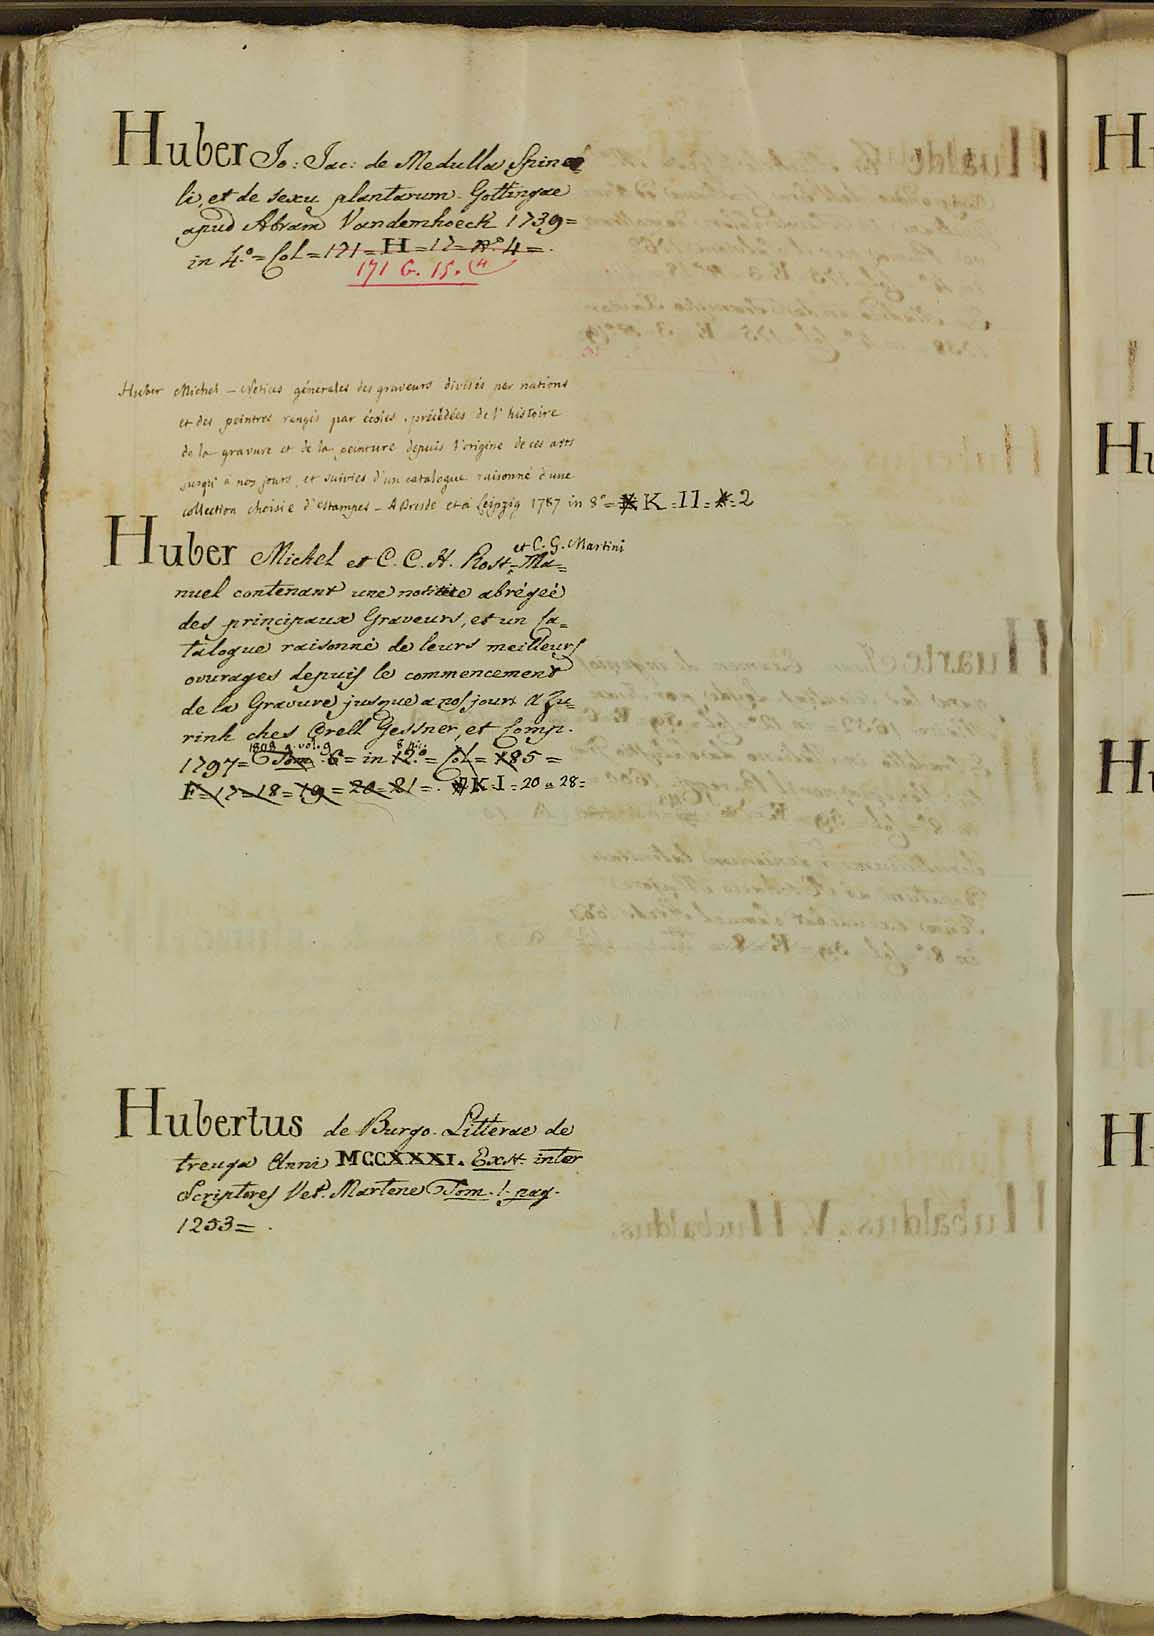 Huber Jo: Jac: de Medulla Spina
li, et de sexu plantarum. Gottingae
apud Abram Vandemhoeck 1739=
in 4.° = Col = 171 = H = 17 = N.° 4 = .
171 G. 15. (4
Huber Michel – Notices générales des graveurs divisés par nations
et des peintres rangés par écoles, précédées de l'histoire
de la gravure et de la peinture depuis l'origine de ces arts
jusqu'à nos jours, et suivies d'un catalogue raisonné d'une
collection choisie d'estampes – A Dresde et à Leipzig 1787 in 8° = K = II = 2
et C. G. Martini
Huber Michel et C. C. H. Rost = Ma=
nuel contenant une notitite abrégéé
des principaux Graveurs, et un Ca=
talogue raisonné de leurs meilleurs
ouvrages depuis le commencement
de la Gravure jusque a nos jours A Zu=
rink ches Orell Gessner, et Comp.
1808 vol. 9 8 pic.
1797 = Tom. 6 = in 12.° = Col = 185 =
F = 17 = 18 = 19 = 20 = 21 = . K = I = 20 a 28 =
Hubertus de Burgo. Litterae de
treuga Anni MCCXXXI. Ext. inter
Scriptores Vet. Martene Tom. I. pag.
1253 = .
H
Hu
Hu
H